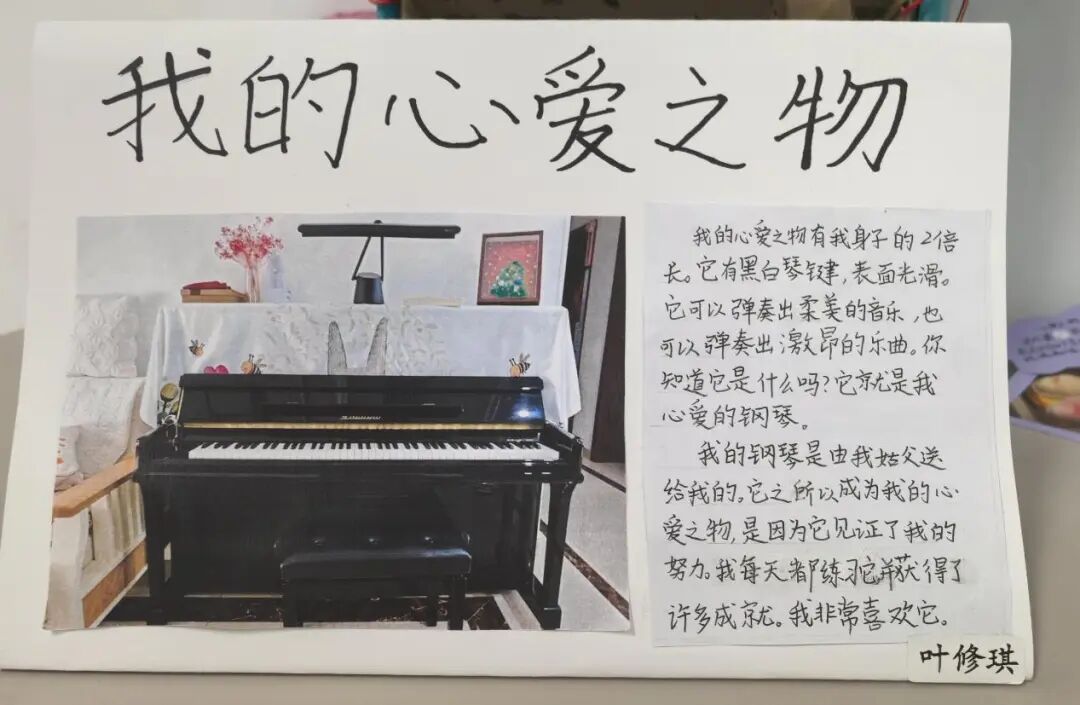 我的心爱之物
我的心爱之物有我身子的2倍
长。它有黑白琴键，表面光滑。
它可以弹奏出柔美的音乐，也
可以弹奏出激昂的乐曲。你
知道它是什么吗？它就是我
心爱的钢琴。
我的钢琴是由我姑父送
给我的。它之所以成为我的心
爱之物，是因为它见证了我的
努力。我每天都练习它并获得了
许多成就。我非常喜欢它。
叶修琪